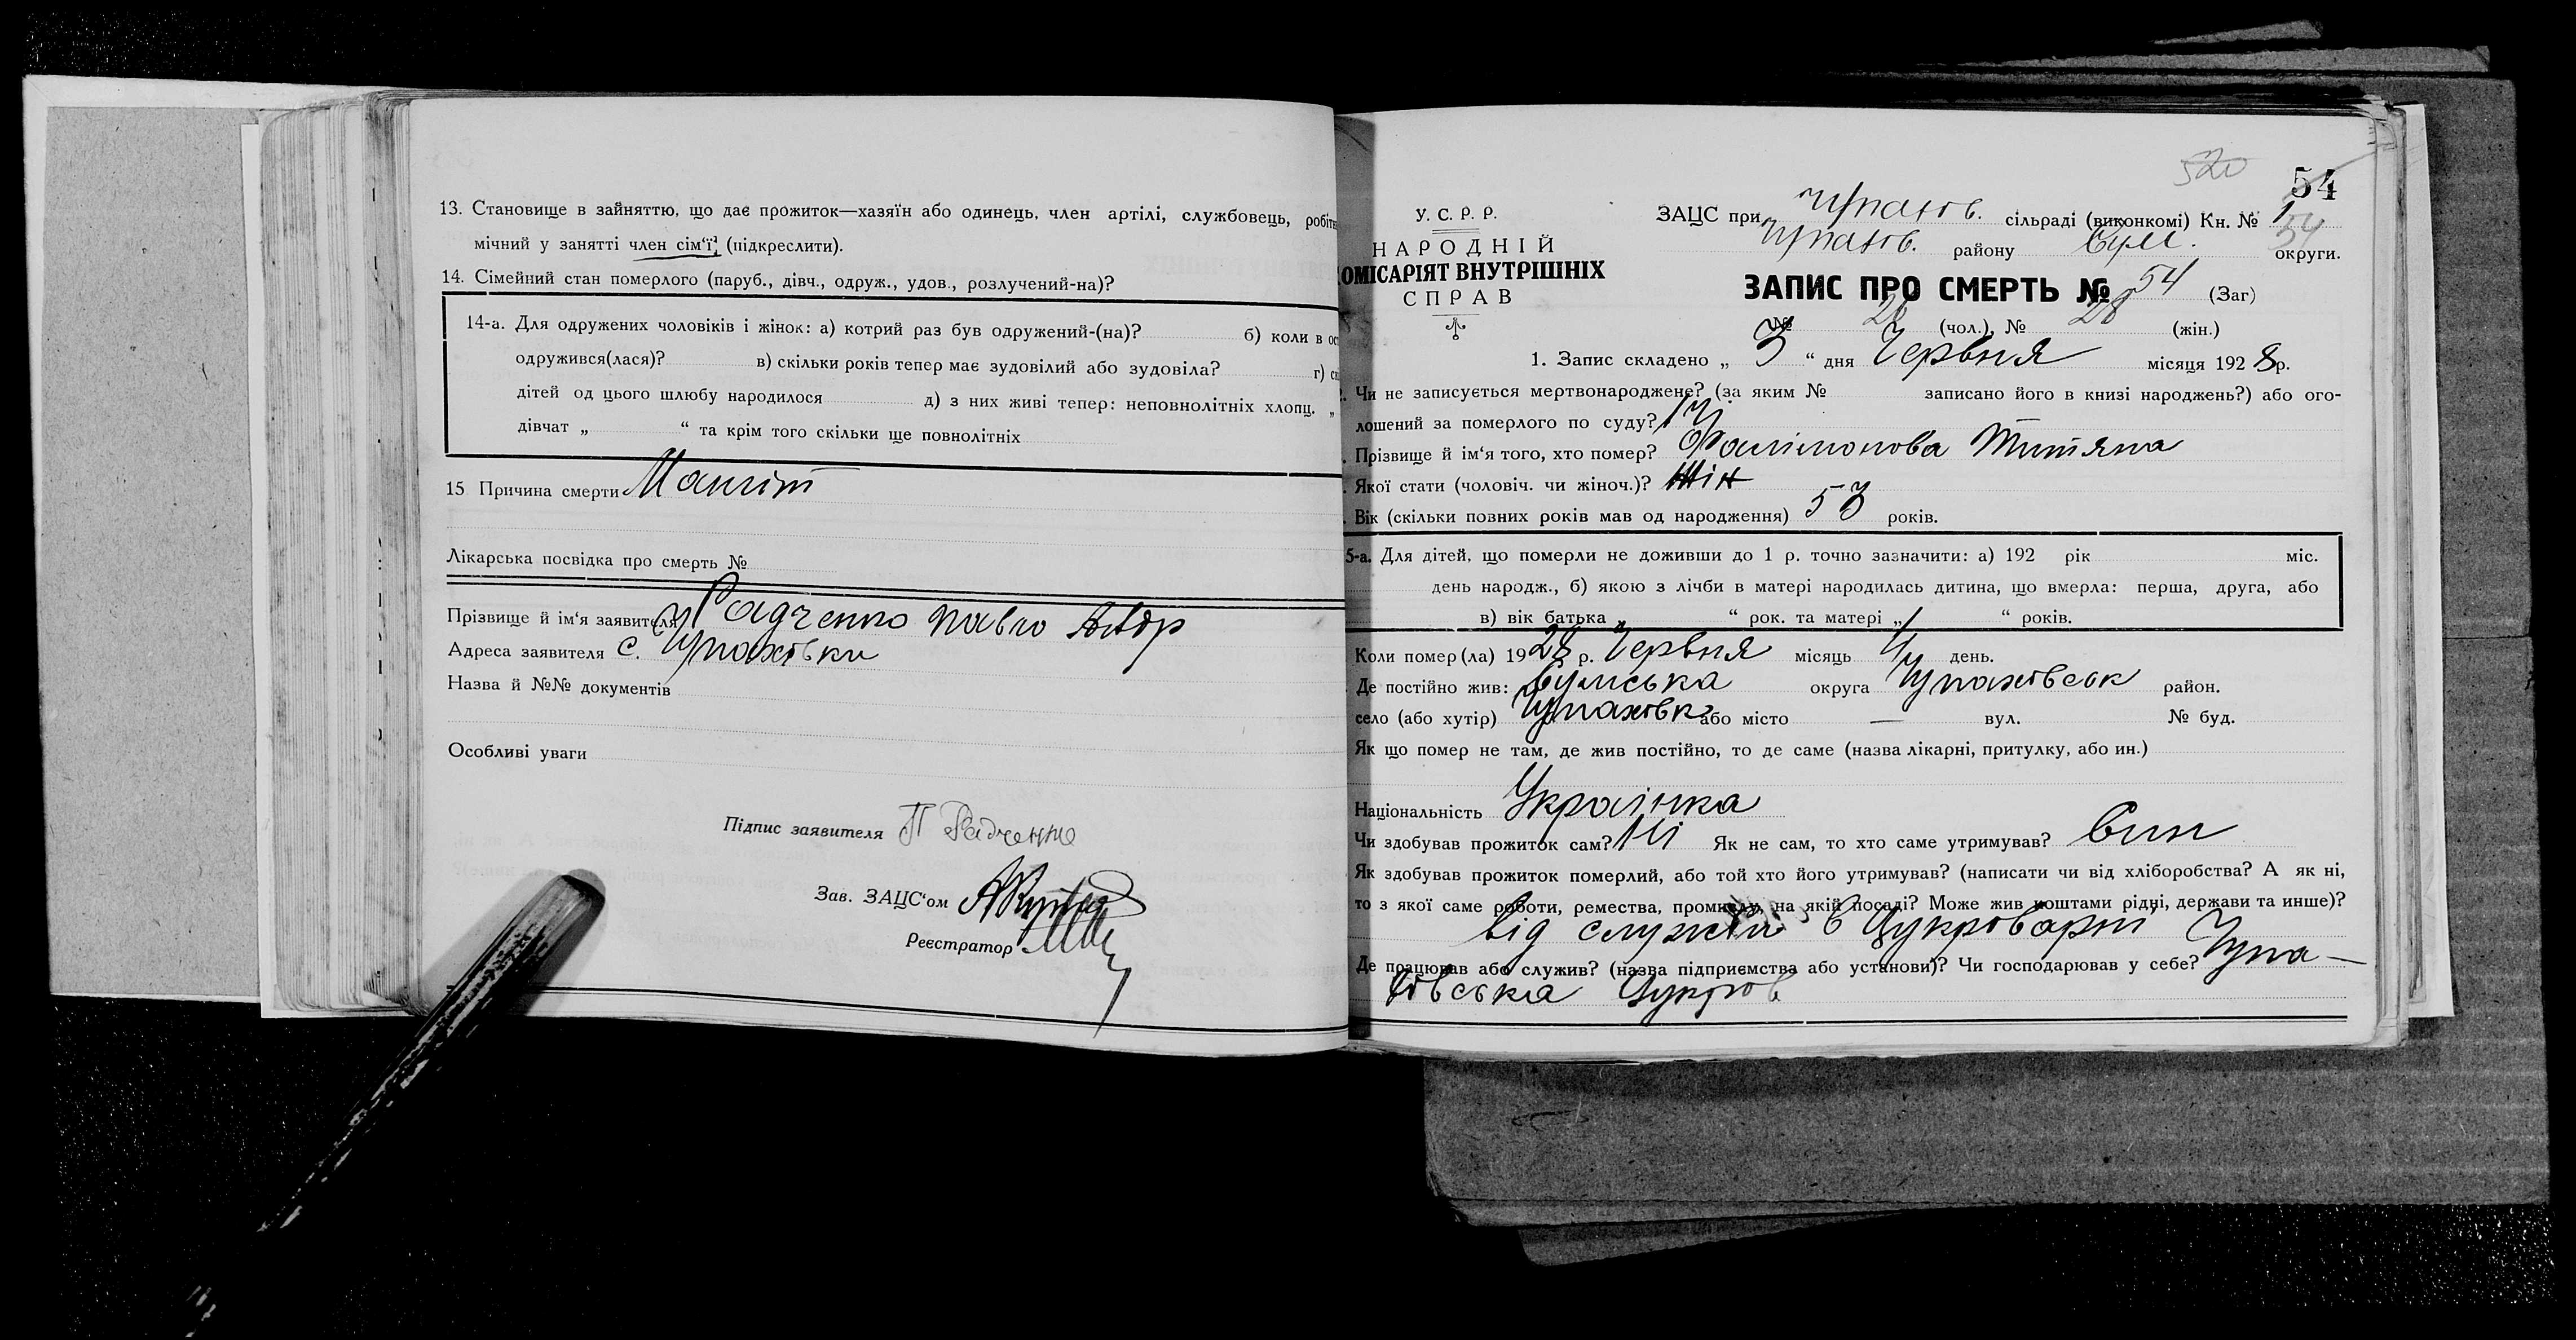 13. Становище в зайняттю, що дає прожиток—хазяїн або одинець, член артілі, службовець, робітн
мічний у занятті член сім'ї (підкреслити).
14. Сімейний стан померлого (паруб., дівч., одруж., удов., розлучений-на)?
14-а. Для одружених чоловіків і жінок: а) котрий раз був одружений-(на)? б) коли в ос
одружився(лася)? в) скільки років тепер має зудовілий або зудовіла? г) ск
дітей од цього шлюбу народилося д) з них живі тепер: неповнолітніх хлопц. „
дівчат „ “ та крім того скільки ще повнолітніх
15 Причина смерти
Лікарська посвідка про смерть №
Прізвище й ім'я заявителя Радченко Павло
Адреса заявителя с. Чупахівки
Назва й №№ документів
Особливі уваги
Підпис заявителя П Радченко
Зав. ЗАЦС'ом
Реєстратор
520
54
У. С. Р. Р.
НАРОДНІЙ
ОМІСАРІЯТ ВНУТРІШНІХ
СПРАВ
ЗАЦС при Чупахів. сільраді (виконкомі) Кн. № 1
54
Чупахів. району Сум. округи.
ЗАПИС ПРО СМЕРТЬ № 54 (Заг)
№ (чол.), № 28 (жін.)
1. Запис складено „ 3 “ дня Червня місяця 1928р.
Чи не записується мертвонароджене? (за яким № записано його в книзі народжень?) або ого-
лошений за померлого по суду? Ні
Прізвище й ім'я того, хто помер? Фалімонова Титяна
Якої стати (чоловіч. чи жіноч.)? Жін
Вік (скільки повних років мав од народження) 53 років.
5-а. Для дітей, що померли не доживши до 1 р. точно зазначити: а) 192 рік міс.
день народж., б) якою з лічби в матері народилась дитина, що вмерла: перша, друга, або
в) вік батька „ “ рок. та матері „ “ років.
Коли помер(ла) 1928 р. Червня місяць день.
Де постійно жив: Сумська округа Чупахівськ район.
село (або хутір) Чупахівка або місто — вул. № буд.
Як що помер не там, де жив постійно, то де саме (назва лікарні, притулку, або ин.)
Національність Українка
Чи здобував прожиток сам? Ні Як не сам, то хто саме утримував? Син
Як здобував прожиток померлий, або той хто його утримував? (написати чи від хліборобства? А як ні,
то з якої саме роботи, ремества, промислу, на якій посаді? Може жив коштами рідні, держави та инше)?
від служби в Цукроварні
Де працював або служив? (назва підприємства або установи)? Чи господарював у себе? Чупа-
хівська Цукров